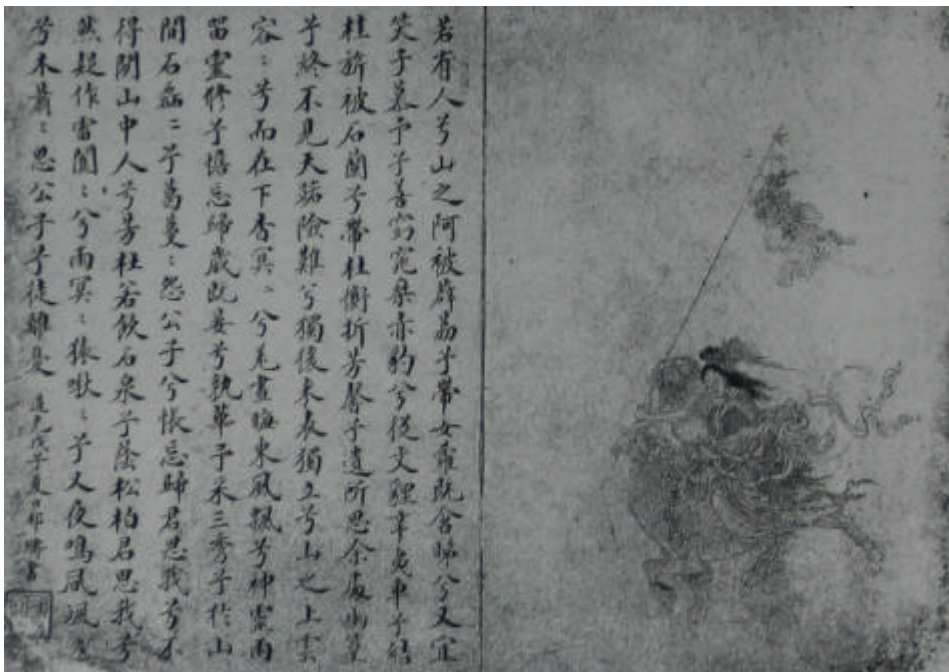 若有人兮山之阿被薜荔兮帶女蘿既含睇兮又宜
笑子慕予兮善窈窕乘赤豹兮從文貍辛夷車兮結
桂旂被石蘭兮帶杜衡折芳馨兮遺所思余處幽篁
兮終不見天路險難兮獨後來表獨立兮山之上雲
容〻兮而在下杳冥〻兮羌晝晦東風飄兮神靈雨
留靈修兮憺忘歸歲既晏兮孰華予采三秀兮於山
間石磊〻兮葛蔓〻怨公子兮悵忘歸君思我兮不
得閒山中人兮芳杜若飲石泉兮蔭松柏君思我兮
然疑作雷闐〻兮雨冥〻猨啾〻兮又夜鳴風颯〻
兮木蕭〻思公子兮徒離憂 道光戊子夏日 書